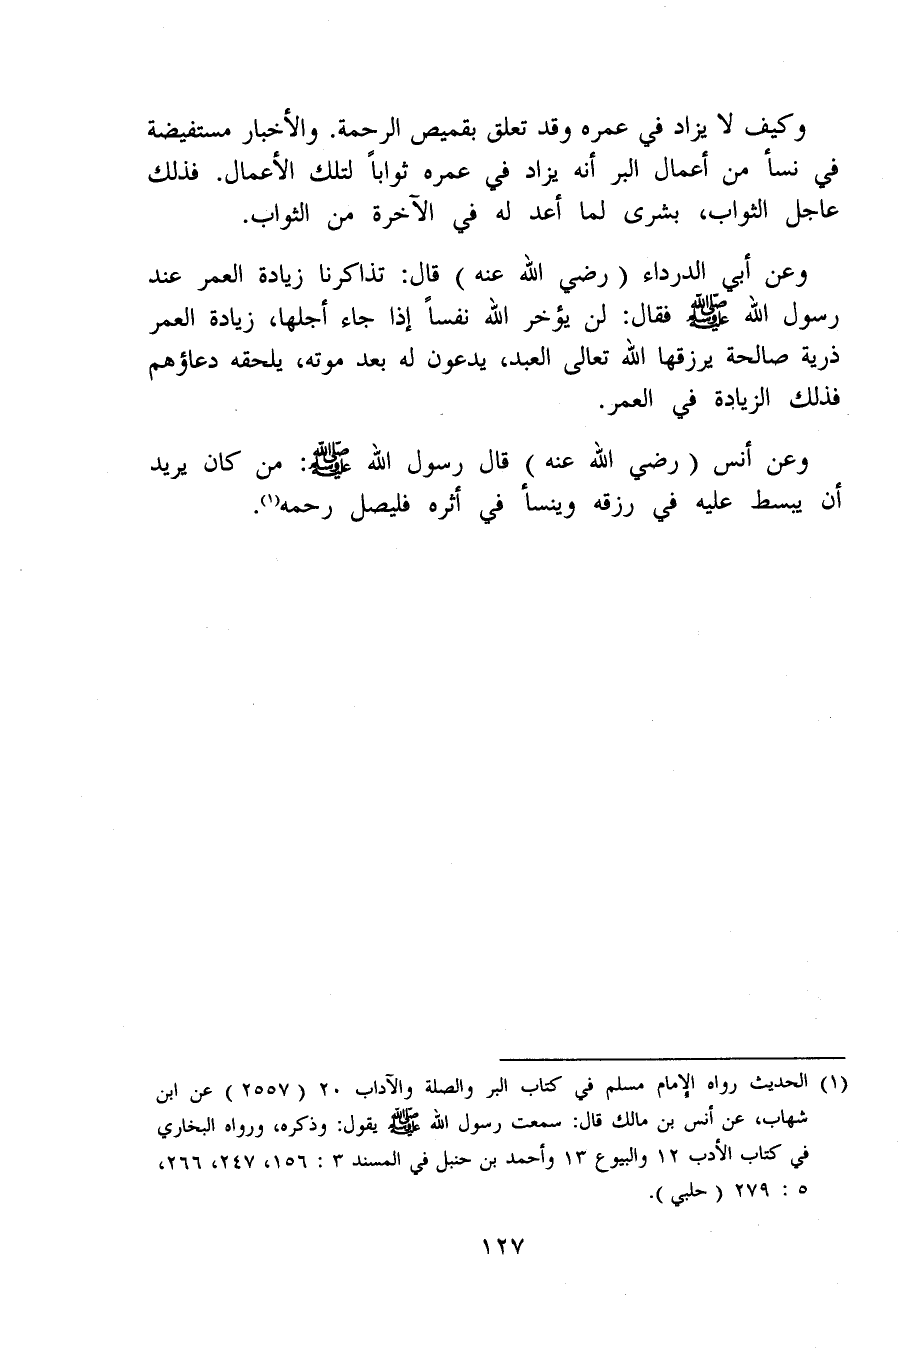 وكيف لا يزاد في عمره وقد تعلق بقميص الرحمة. والأخبار مستفيضة
في نسأ من أعمال البر أنه يزاد في عمره ثواباً لتلك الأعمال. فذلك
عاجل الثواب، بشرى لما أعد له في الآخرة من الثواب.
وعن أبي الدرداء ( رضي الله عنه ) قال: تذاكرنا زيادة العمر عند
رسول الله ﷺ فقال: لن يؤخر الله نفساً إذا جاء أجلها، زيادة العمر
ذرية صالحة يرزقها الله تعالى العبد، يدعون له بعد موته، يلحقه دعاؤهم
فذلك الزيادة في العمر.
وعن أنس ( رضي الله عنه ) قال رسول الله ﷺ: من كان يريد
أن يبسط عليه في رزقه وينسأ في أثره فليصل رحمه(١).
(١) الحديث رواه الإمام مسلم في كتاب البر والصلة والآداب ٢٠ ( ٢٥٥٧ ) عن ابن
شهاب، عن أنس بن مالك قال: سمعت رسول الله ﷺ يقول: وذكره، ورواه البخاري
في كتاب الأدب ١٢ والبيوع ١٣ وأحمد بن حنبل في المسند ٣ : ١٥٦، ٢٤٧، ٢٦٦،
٥ : ٢٧٩ ( حلبي ).
١٢٧